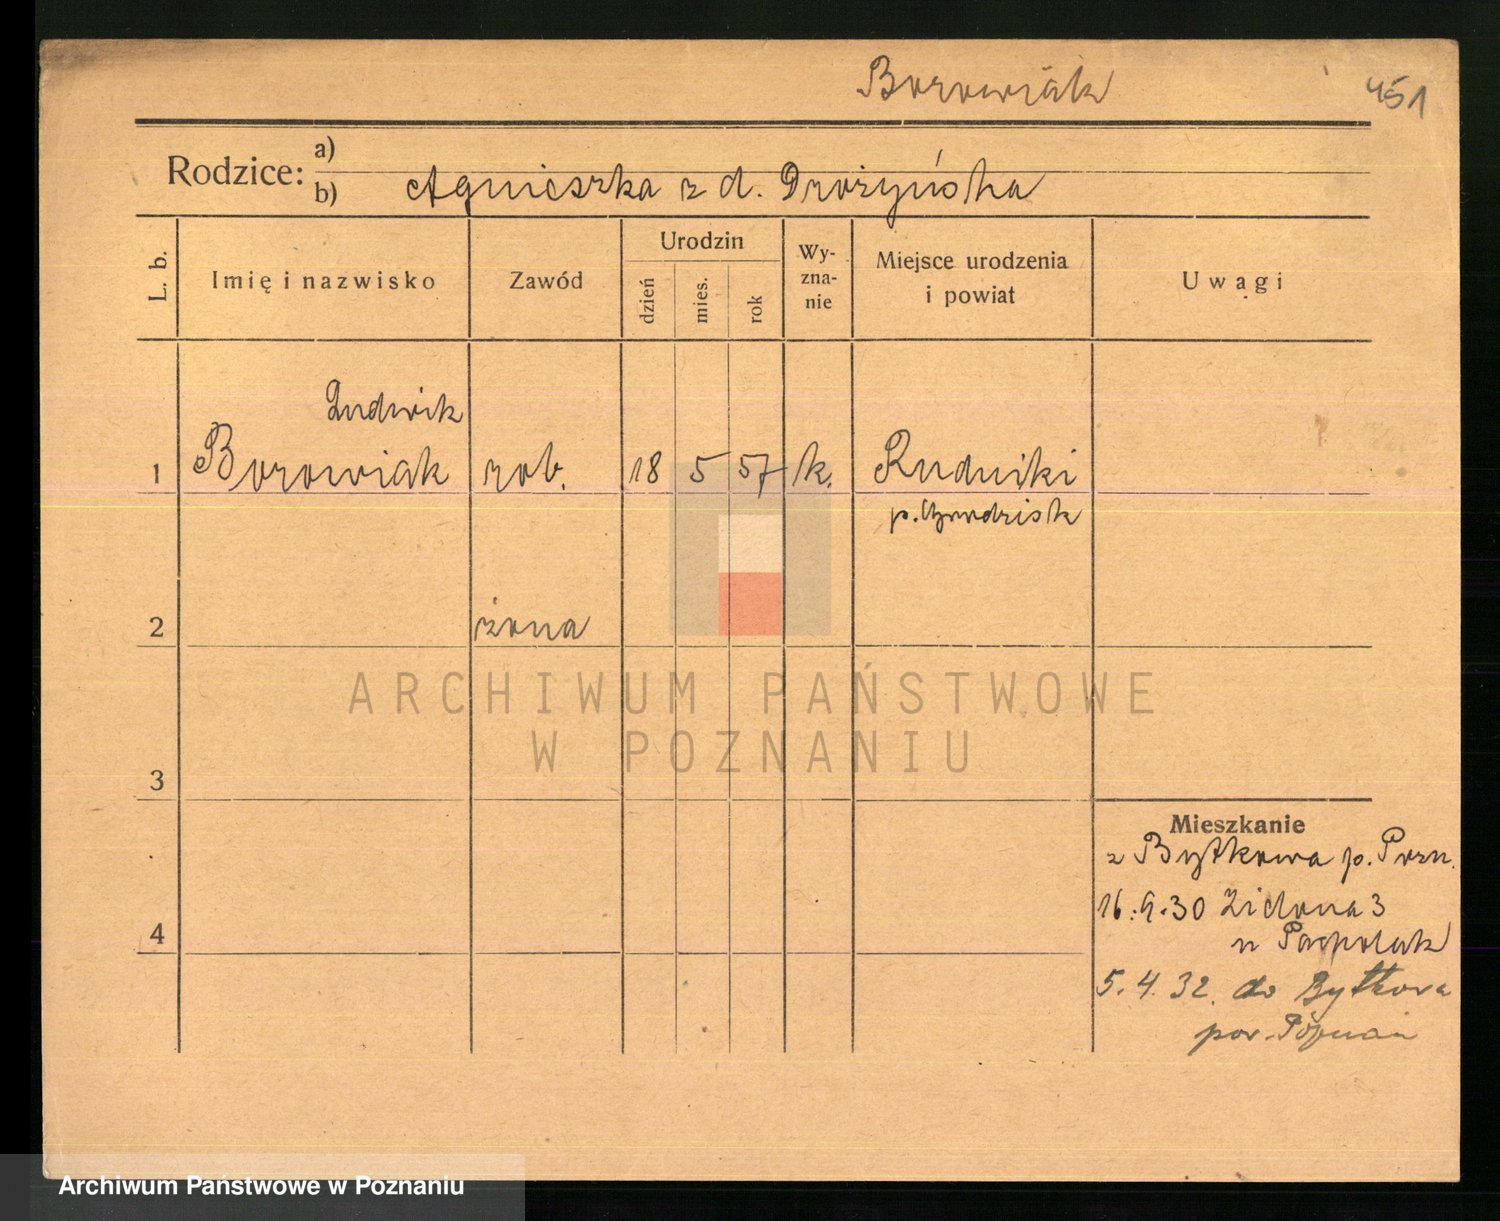 Borowiak 451
Rodzice: a)
b) Agnieszka z d. Drożyńska
L. b. Imię i nazwisko Zawód Urodzin dzień mies. rok Wy-zna-nie Miejsce urodzenia i powiat Uwagi
Ludwik
1 Borowiak rob. 18 5 57 k. Rudniki
p. Grodzisk
2 żona
ARCHIWUM PAŃSTWOWE
W POZNANIU
3
Mieszkanie
z Bytkowa p. Pozn.
16.9.30 3
4 u
5.4.32. do Bytkowa
pow. Poznań
Archiwum Państwowe w Poznaniu